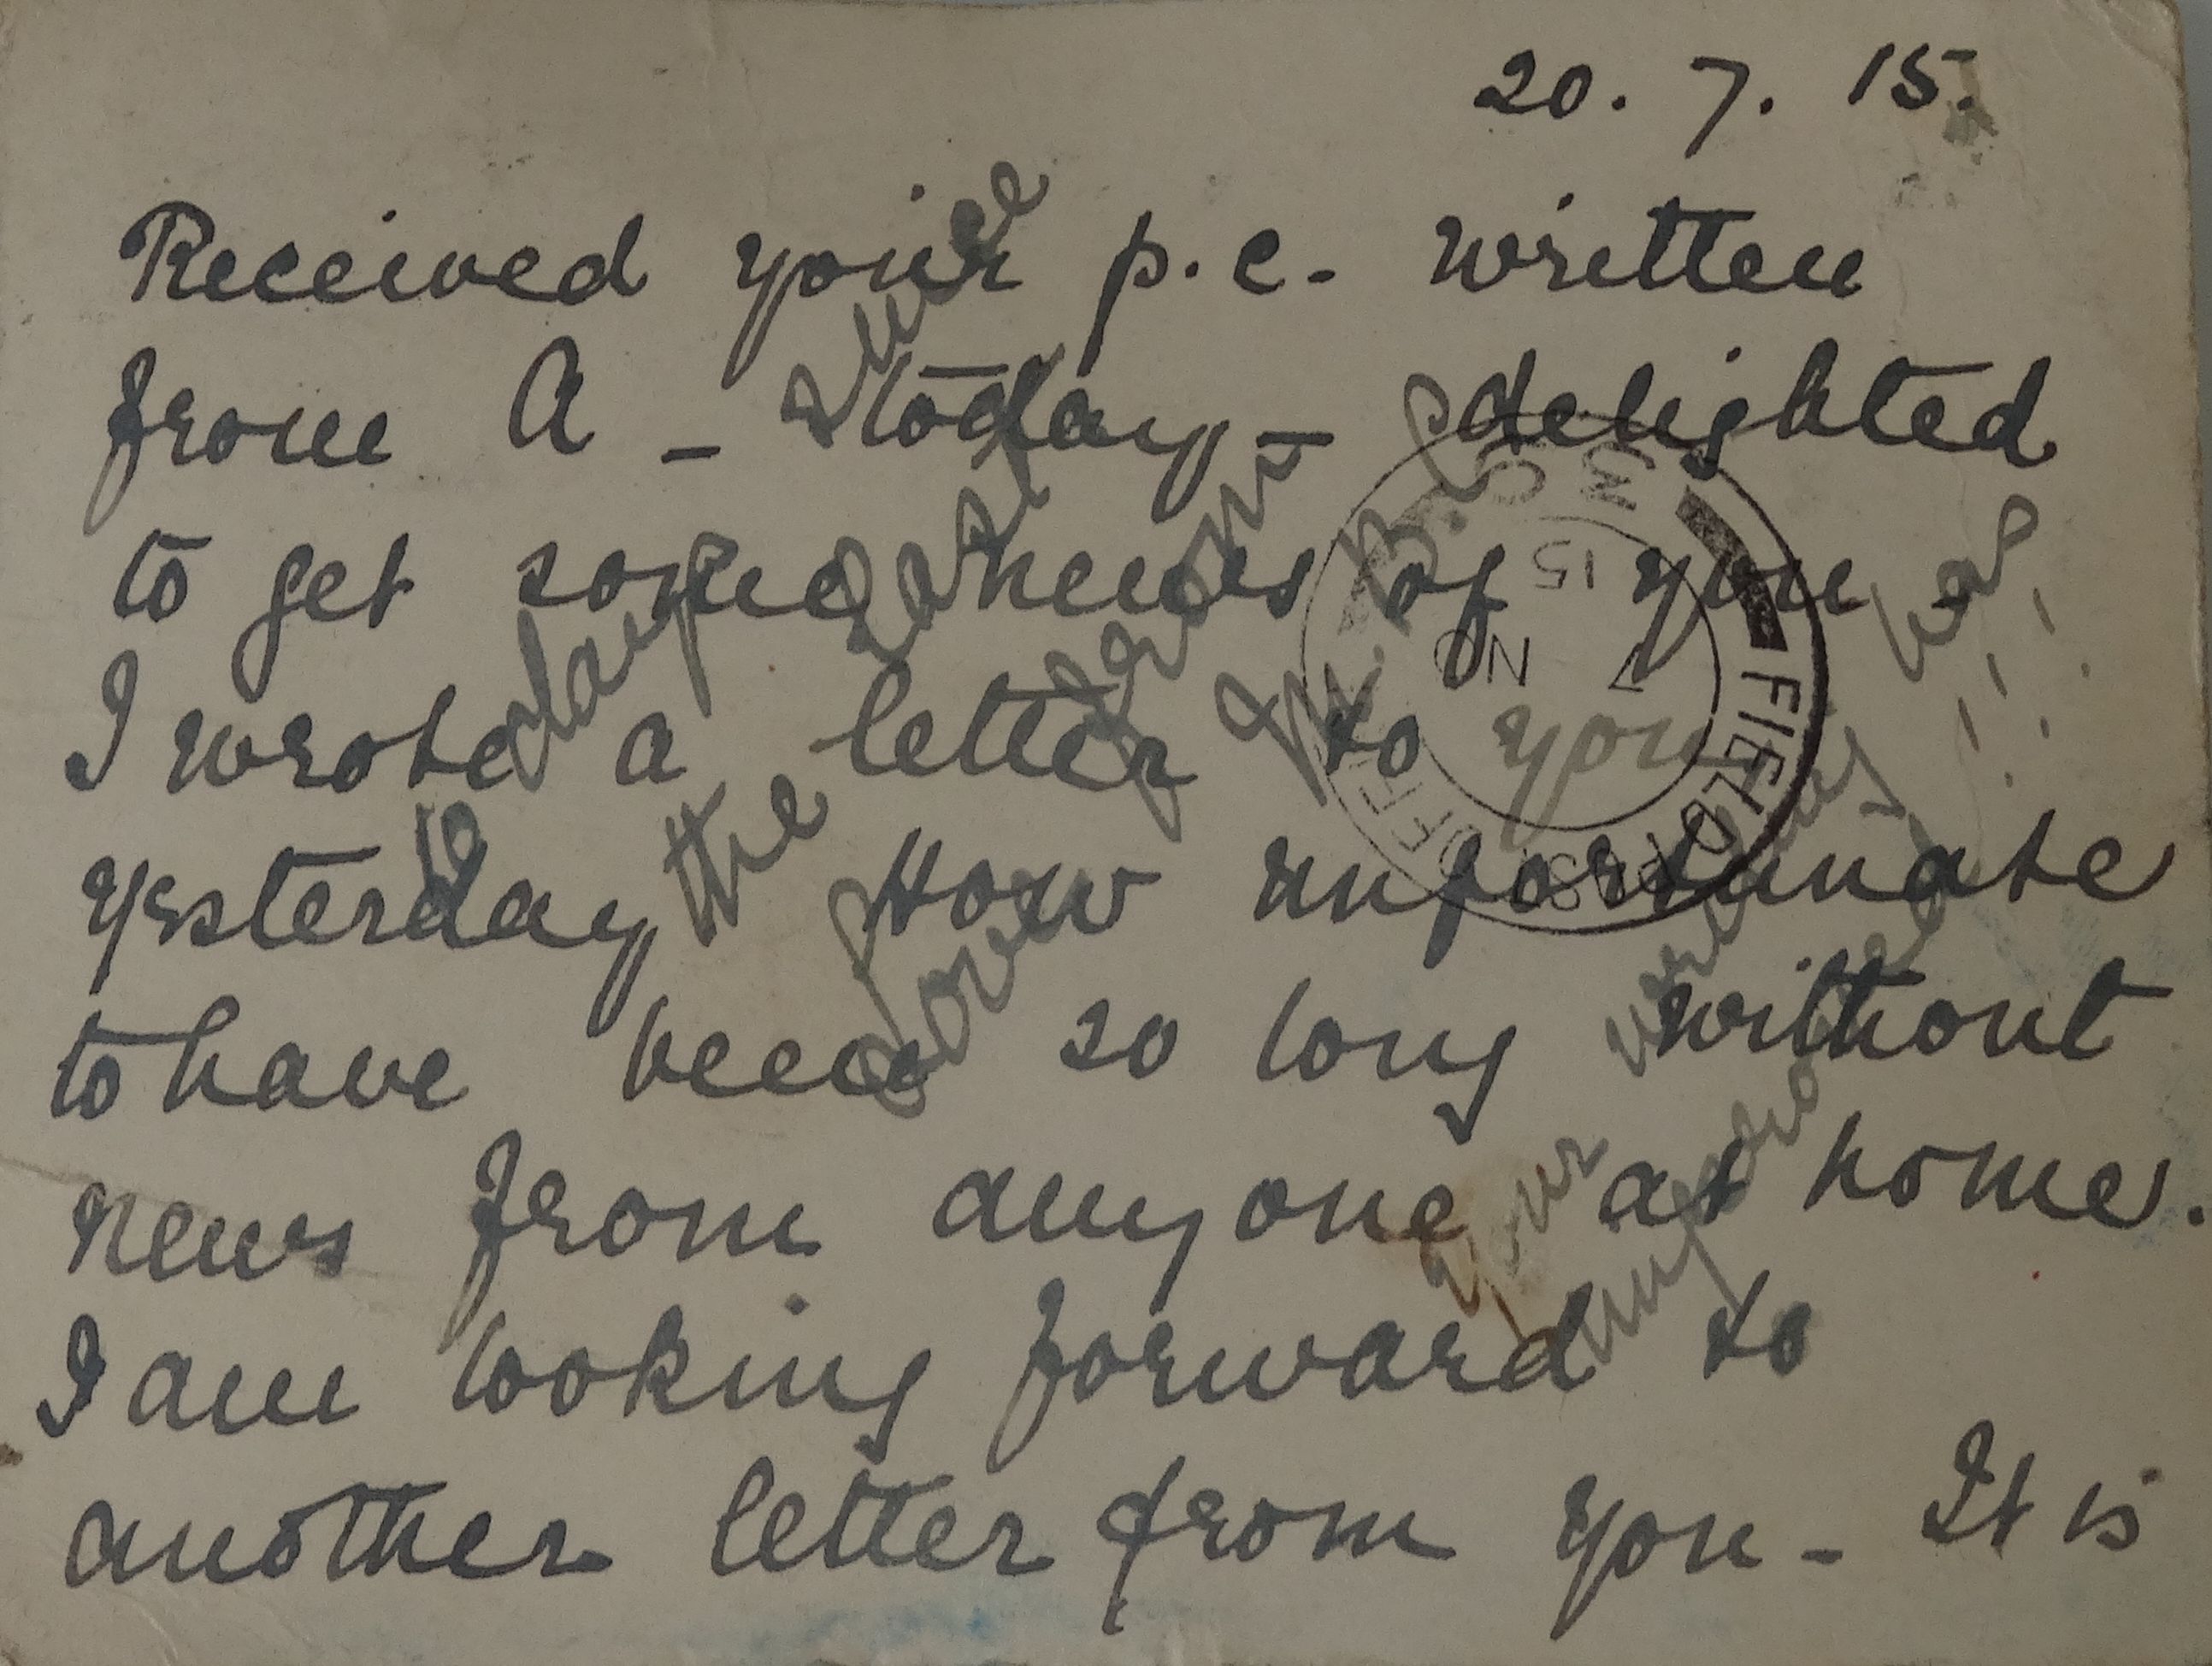 20. 7. 15.
Received your p.c. written
from A - today - delighted
to get some news of you
I wrote a letter to you
yesterday How unfortunate
to have been so long without
news from anyone at home.
I am looking forward to
another letter from you - It is
days since
the last
Love from
Your writing has
improved !!!
FIELD POST OFFICE
NO
15